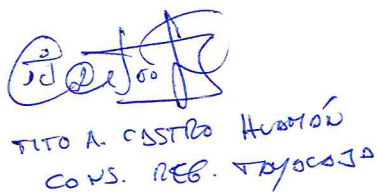 TITO A. CASTRO HUAMÁN
CONS. REG. TAYACAJA